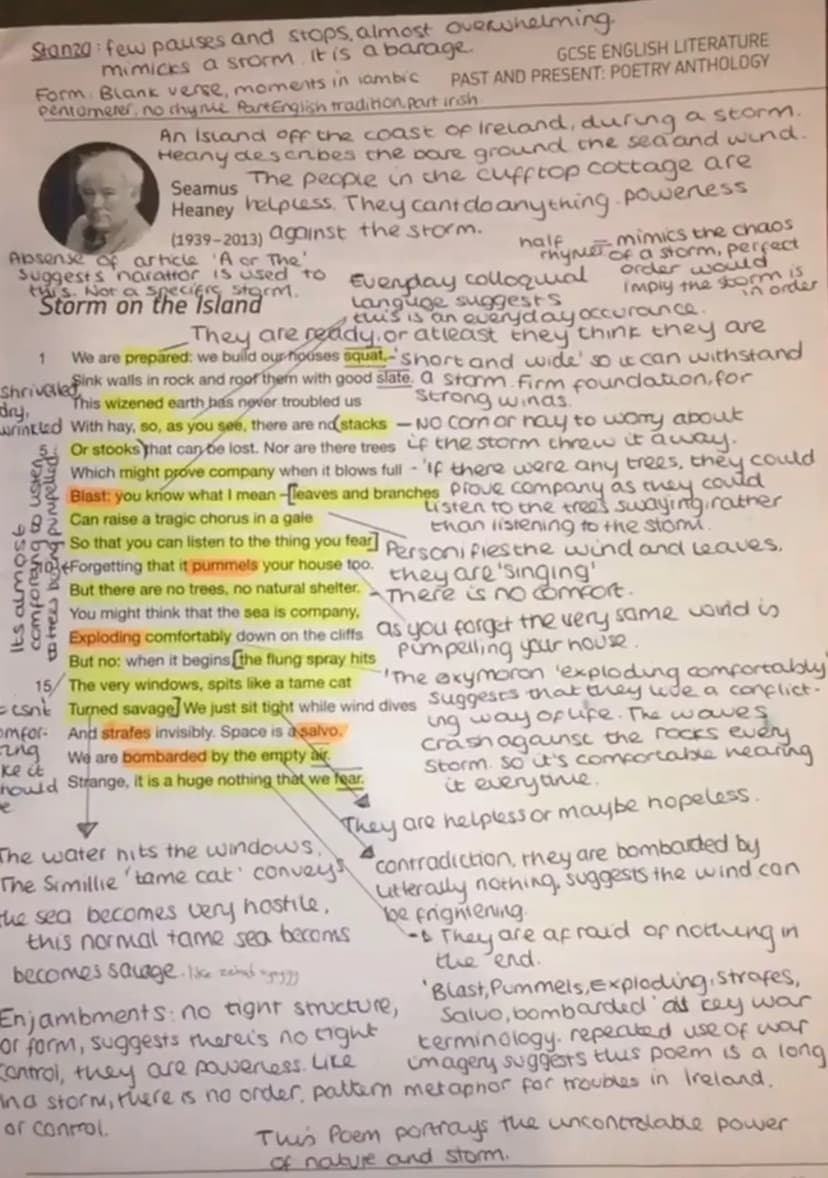 Stanza: few pauses and stops, almost overwhelming.
mimicks a storm. it is a barage.
GCSE ENGLISH LITERATURE
PAST AND PRESENT: POETRY ANTHOLOGY
Form: Blank verse, moments in iambic
pentameter, no rhyme. Part English tradition, part irish
An Island off the coast of Ireland, during a storm.
Heany describes the bare ground the sea and wind.
The people in the clifftop cottage are
helpless. They cant do anything. powerless
against the storm.
Seamus
Heaney
(1939–2013)
half rhymes = mimics the chaos
of a storm, perfect
order would
imply the storm is
in order
Absense of article 'A or The'
suggests narattor is used to
this. Not a specific storm.
Everyday colloquial
languge suggests
this is an everyday occurance.
Storm on the Island
They are ready, or atleast they think they are
1 We are prepared: we build our houses squat,
Sink walls in rock and roof them with good slate.
This wizened earth has never troubled us
With hay, so, as you see, there are no stacks
5 Or stooks that can be lost. Nor are there trees
Which might prove company when it blows full
Blast: you know what I mean – leaves and branches
Can raise a tragic chorus in a gale
So that you can listen to the thing you fear
10 Forgetting that it pummels your house too.
But there are no trees, no natural shelter.
You might think that the sea is company,
Exploding comfortably down on the cliffs
But no: when it begins, the flung spray hits
15 The very windows, spits like a tame cat
Turned savage. We just sit tight while wind dives
And strafes invisibly. Space is a salvo.
We are bombarded by the empty air.
Strange, it is a huge nothing that we fear.
'short and wide' so it can withstand
a storm. Firm foundation, for
strong winds.
shrivelled,
dry,
wrinkled
– No corn or hay to worry about
if the storm threw it away.
- 'If there were any trees, they could
prove company as they could
listen to the trees swaying, rather
than listening to the storm.
Its almost
comforting to listen
to trees being pumpelled.
Personifies the wind and leaves,
they are 'singing'
- There is no comfort.
as you forget the very same wind is
pumpelling your house.
'The oxymoron 'exploding comfortably'
suggests that they live a conflict-
ing way of life. The waves
crash against the rocks every
storm. so it's comfortable hearing
it everytime.
They are helpless or maybe hopeless.
contradiction, they are bombarded by
litterally nothing, suggests the wind can
be frightening.
→ They are afraid of nothing in
the end.
The water hits the windows.
The Simillie 'tame cat' conveys
the sea becomes very hostile,
this normal tame sea becoms
becomes savage.
'Blast, Pummels, Exploding, Strafes,
Salvo, bombarded' all key war
terminology. repeated use of war
imagery suggests this poem is a long
metaphor for troubles in Ireland.
Enjambments: no tight structure,
or form, suggests there is no tight
control, they are powerless. Like
in a storm, there is no order, pattern
or control.
This Poem portrays the uncontrolable power
of nature and storm.